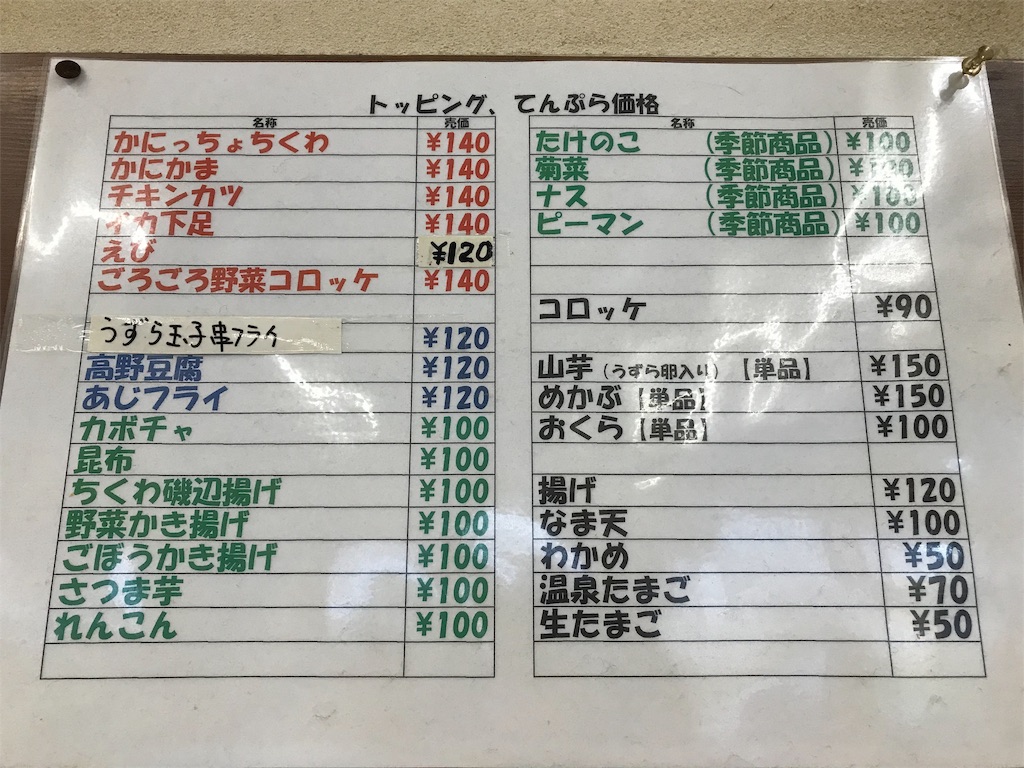 トッピング、てんぷら価格
名称 売価
かにっちょちくわ ¥140
かにかま ¥140
チキンカツ ¥140
イカ下足 ¥140
えび ¥120
ごろごろ野菜コロッケ ¥140
うずら玉子串フライ ¥120
高野豆腐 ¥120
あじフライ ¥120
カボチャ ¥100
昆布 ¥100
ちくわ磯辺揚げ ¥100
野菜かき揚げ ¥100
ごぼうかき揚げ ¥100
さつま芋 ¥100
れんこん ¥100
名称 売価
たけのこ (季節商品) ¥100
菊菜 (季節商品) ¥100
ナス (季節商品) ¥100
ピーマン (季節商品) ¥100
コロッケ ¥90
山芋(うずら卵入り)【単品】 ¥150
めかぶ【単品】 ¥150
おくら【単品】 ¥100
揚げ ¥120
なま天 ¥100
わかめ ¥50
温泉たまご ¥70
生たまご ¥50